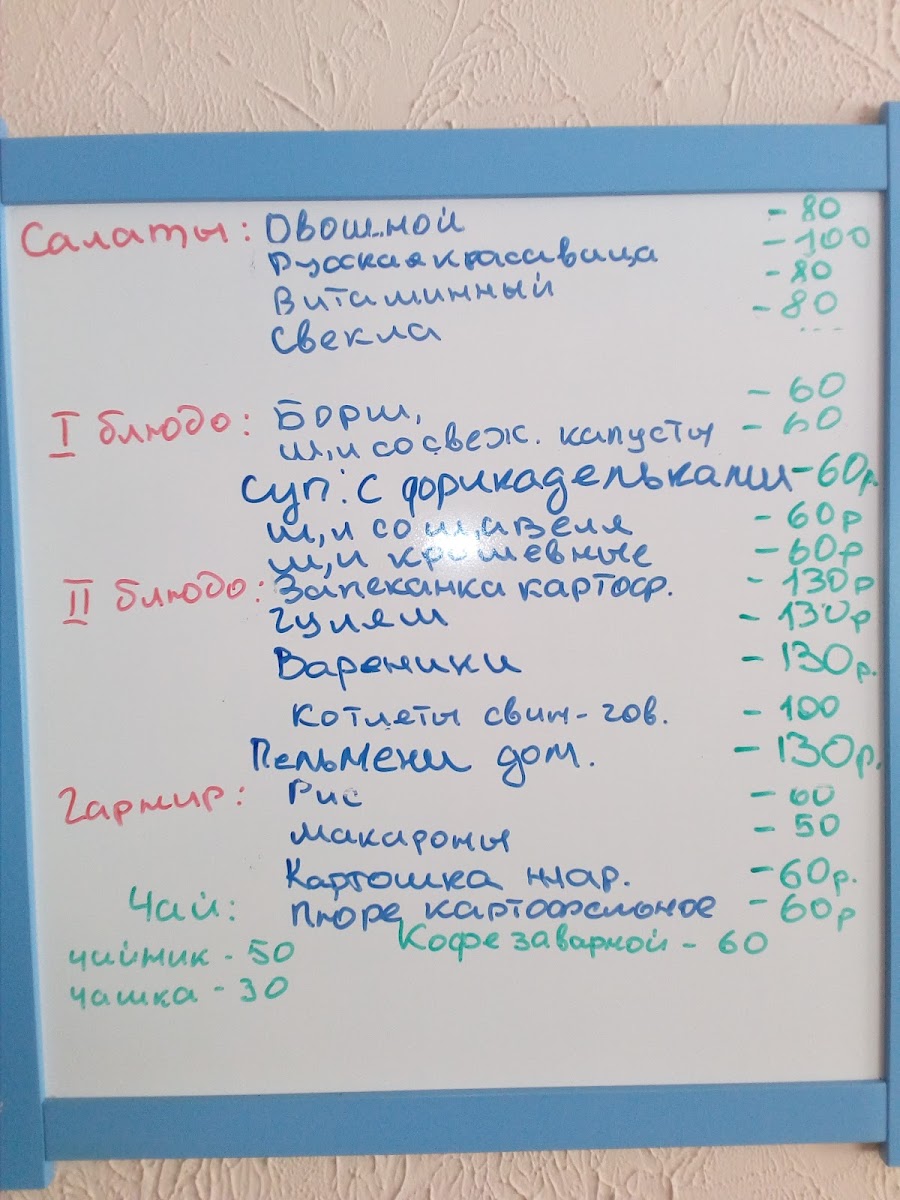 Салаты: Овощной - 80
Русская красавица - 100
Витаминный - 80
Свекла - 80
I блюдо: Борщ, - 60
щи со свеж. капусты - 60
Суп: с фрикадельками - 60р.
щи со щавеля - 60р
щи крошевные - 60р
II блюдо: Запеканка картоф. - 130р
Гуляш - 130р
Вареники - 130р.
Котлеты свин-гов. - 100
Пельмени дом. - 130р.
Гарнир: Рис - 60
Макароны - 50
Картошка жар. - 60р.
Чай: Пюре картофельное - 60р
чайник - 50 Кофе заварной - 60
чашка - 30